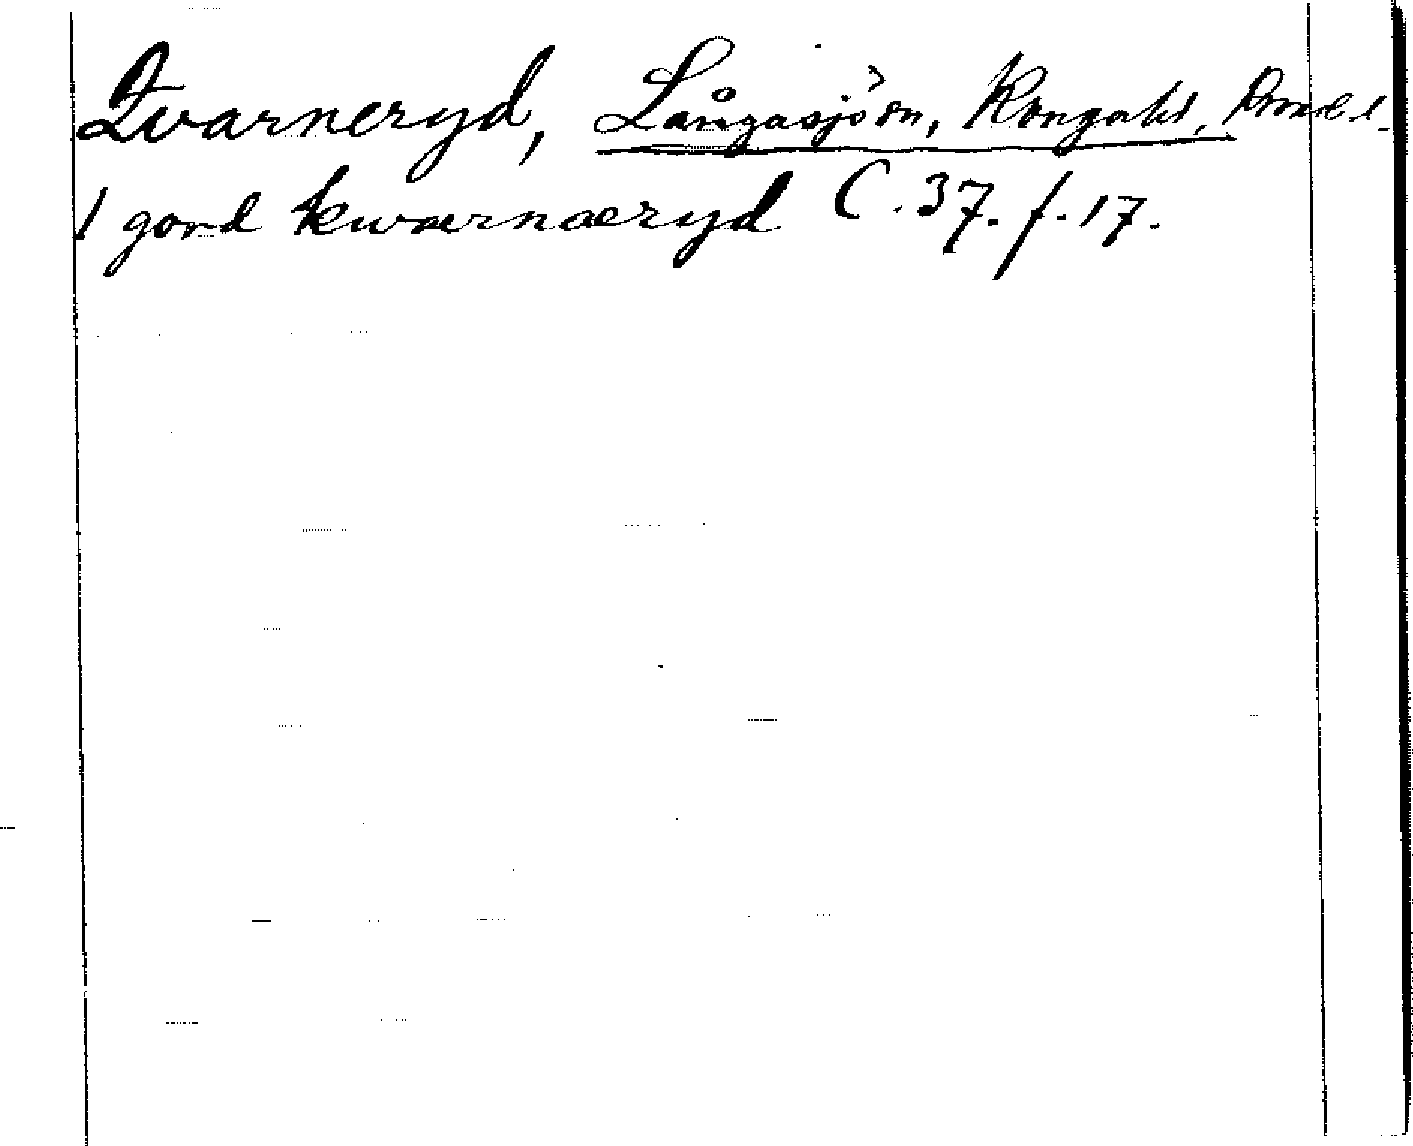 Qvarneryd, Långasjösn, Konga hd,
1 gord kwærnæryd C. 37. f. 17.